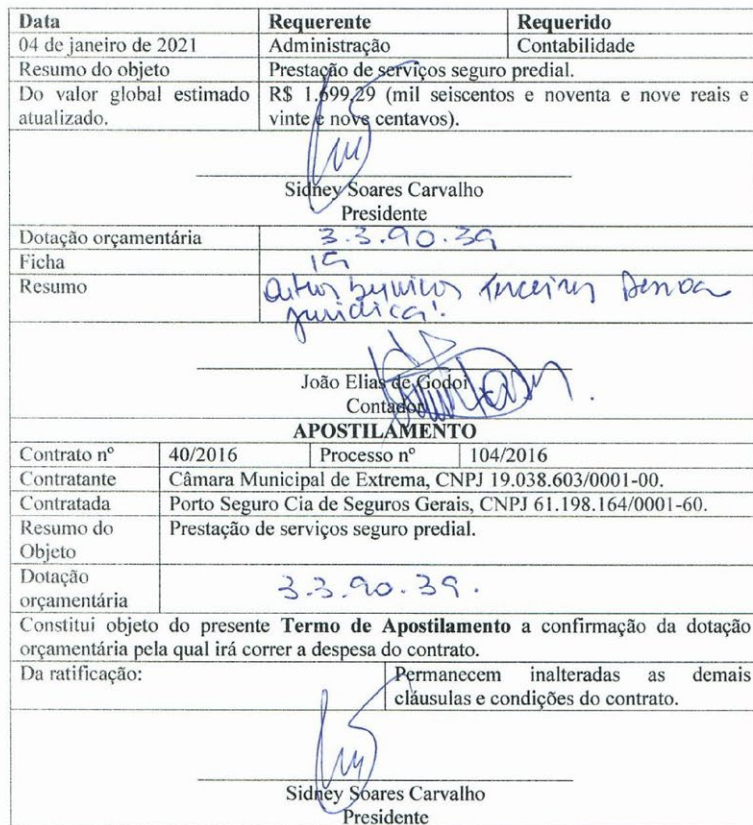 Data Requerente Requerido
04 de janeiro de 2021 Administração Contabilidade
Resumo do objeto Prestação de serviços seguro predial.
Do valor global estimado R$ 1.699,29 (mil seiscentos e noventa e nove reais e
atualizado. vinte e nove centavos).
Sidney Soares Carvalho
Presidente
Dotação orçamentária 3.3.90.39
Ficha 19
Resumo Outros Serviços Terceiros Pessoa
jurídica!
João Elias de Godoi
Contador
APOSTILAMENTO
Contrato nº 40/2016 Processo nº 104/2016
Contratante Câmara Municipal de Extrema, CNPJ 19.038.603/0001-00.
Contratada Porto Seguro Cia de Seguros Gerais, CNPJ 61.198.164/0001-60.
Resumo do Prestação de serviços seguro predial.
Objeto
Dotação
orçamentária 3.3.90.39.
Constitui objeto do presente Termo de Apostilamento a confirmação da dotação
orçamentária pela qual irá correr a despesa do contrato.
Da ratificação: Permanecem inalteradas as demais
cláusulas e condições do contrato.
Sidney Soares Carvalho
Presidente